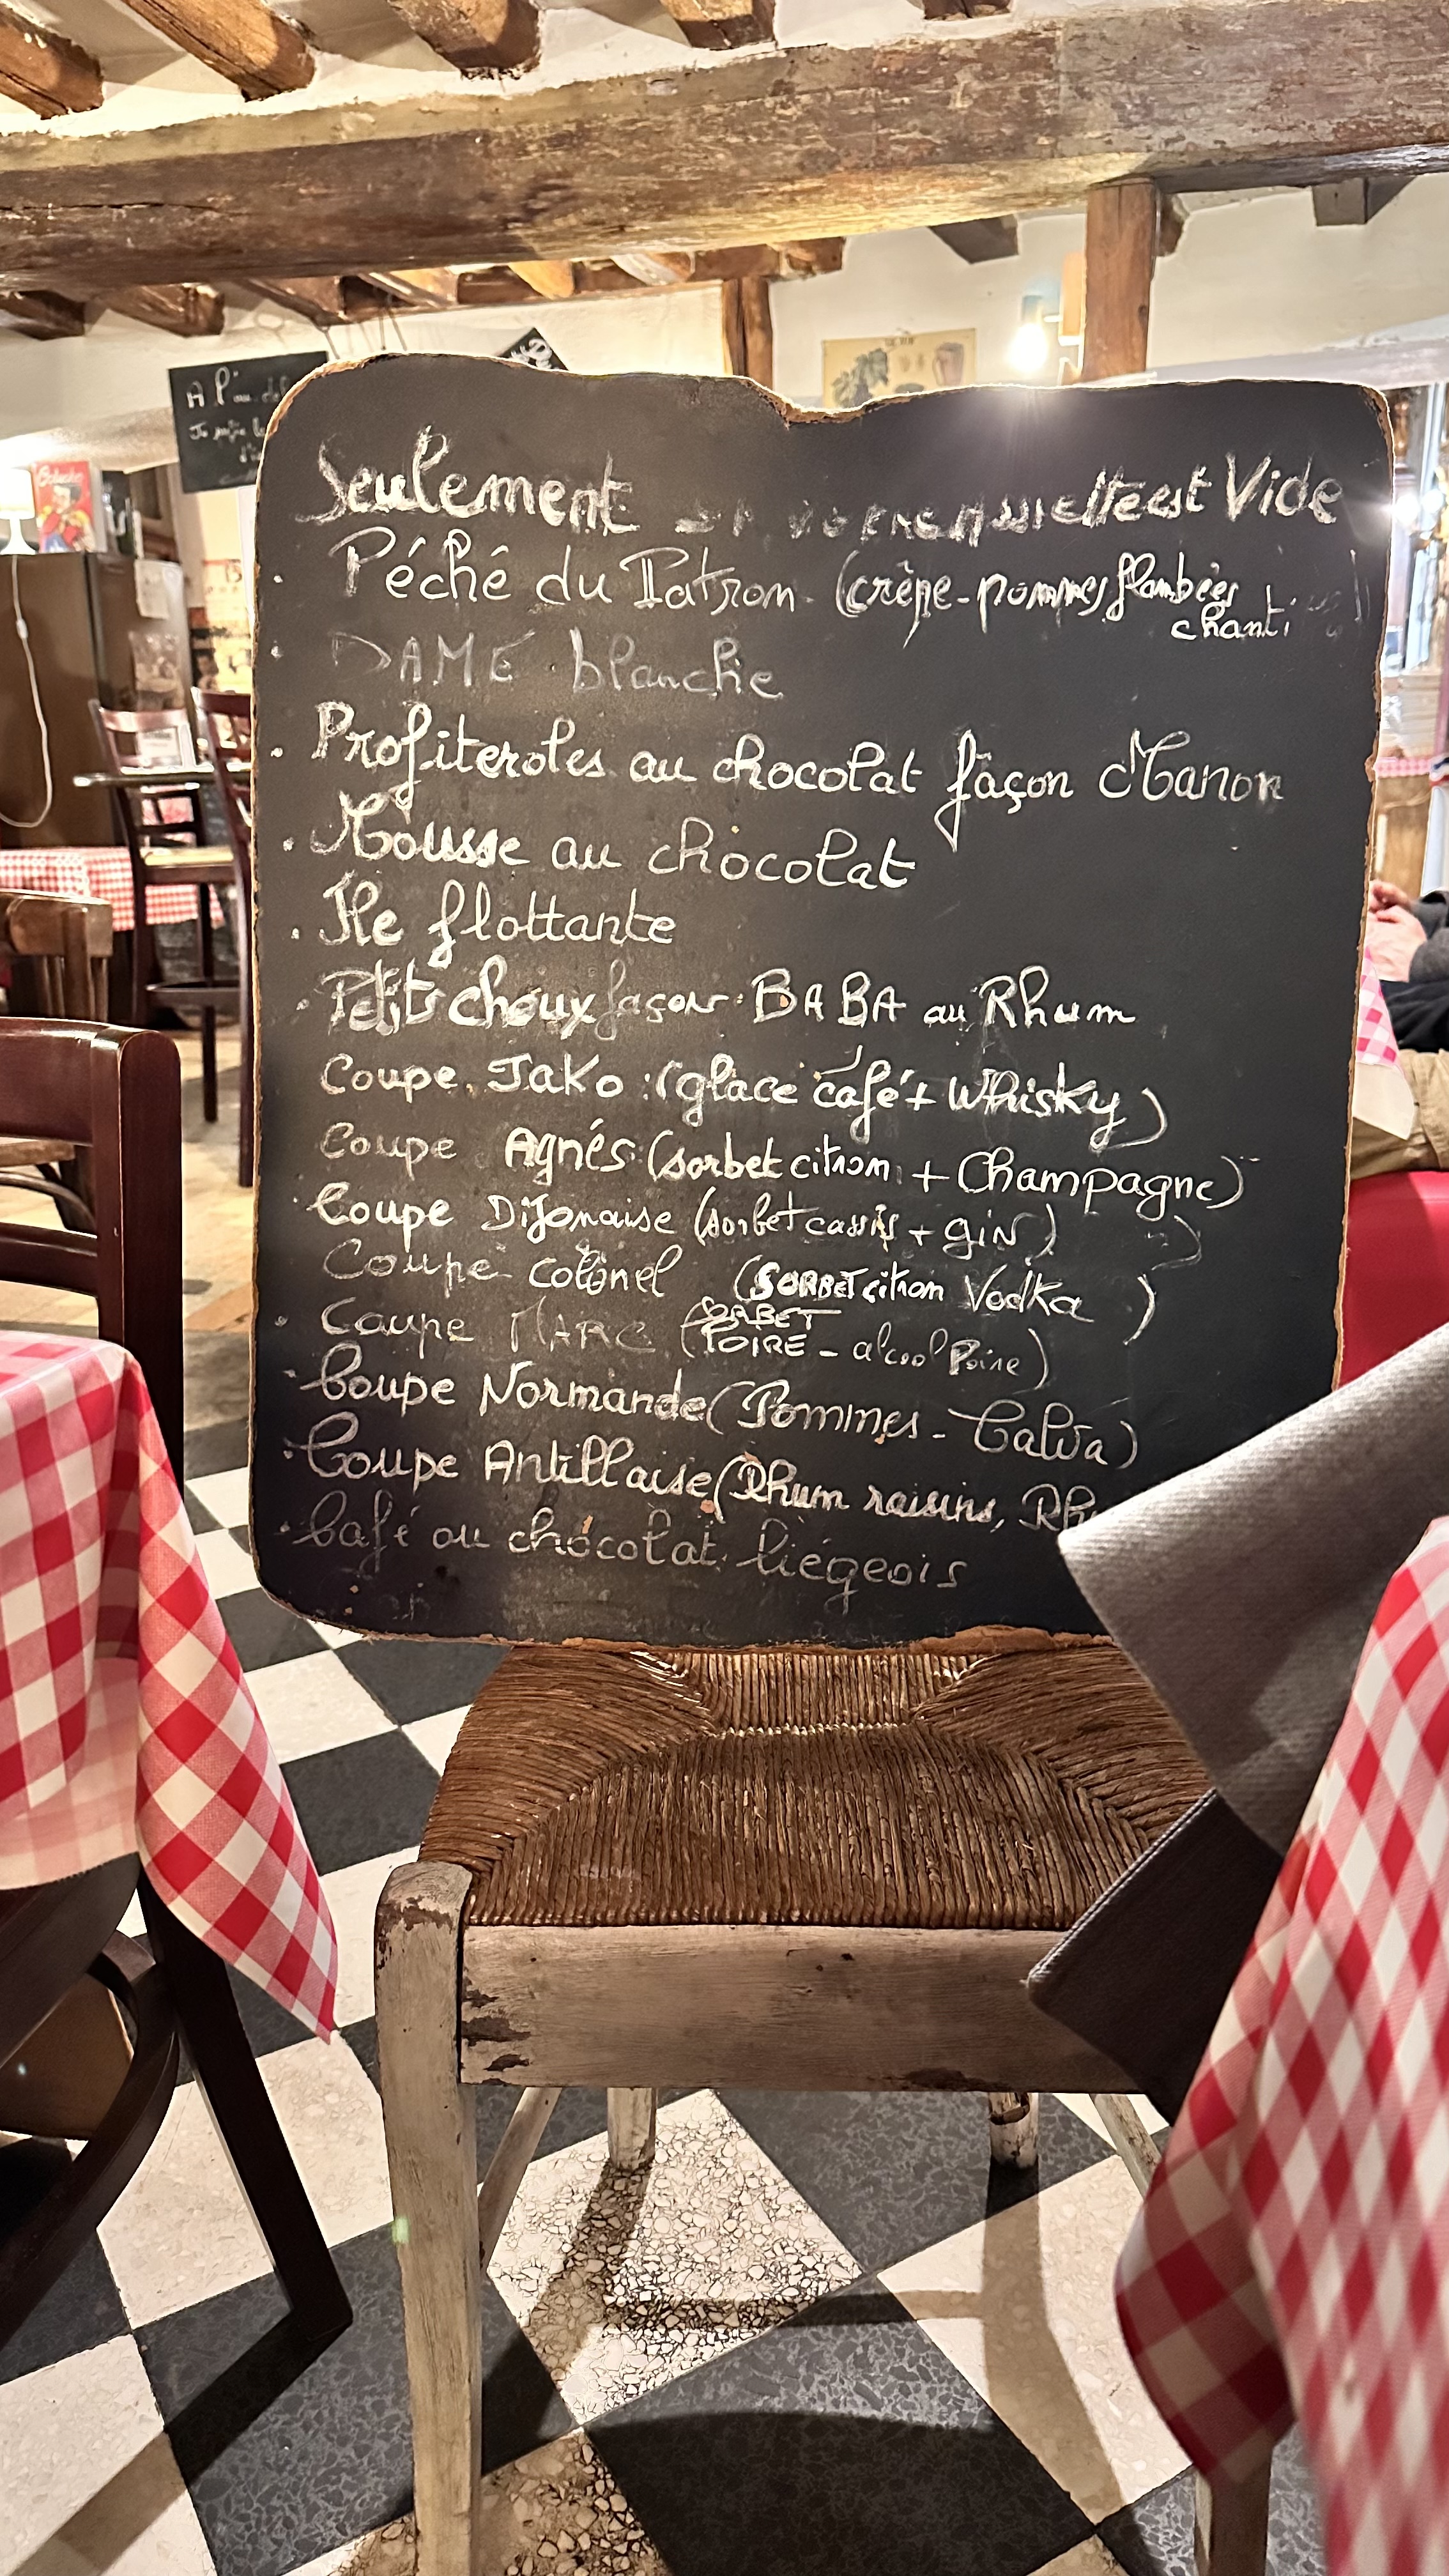 A l'
Seulement si votre assiette est Vide
Péché du Patron (crêpe-pommes flambées
chanti
DAME blanche
Profiteroles au chocolat façon Manon
Mousse au chocolat
Ile flottante
Petits choux façon BABA au Rhum
Coupe JaKo : (glace café + Whisky)
Coupe Agnés (sorbet citron + Champagne)
Coupe Dijonaise (sorbet cassis + gin)
Coupe colonel (SORBET citron Vodka)
Coupe MARC (SORBET
POIRE - alcool Poire)
Coupe Normande (Pommes - Calva)
Coupe Antillaise (Rhum raisins, Rh
Café ou chocolat liégeois